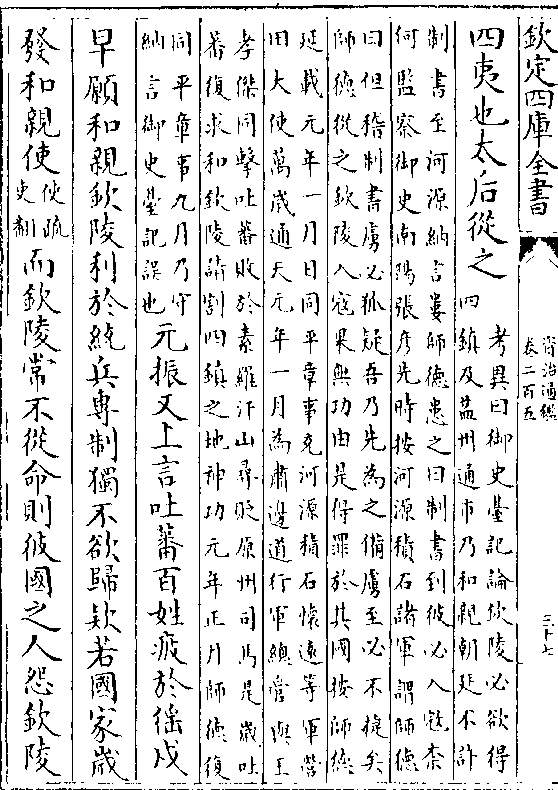 欽定四庫全書
資治通鑑
卷二百五
三十七
四夷也太后從之
考異曰御史臺記論欽陵必欲得
四鎮及益州通市乃和親朝廷不許
制書至河源納言婁師德患之曰制書到彼必入寇柰
何監察御史南陽張彦先時按河源積石諸軍謂師德
曰但稽制書虜必狐疑吾乃先為之備虜至必不捷矣
師德從之欽陵入寇果無功由是得罪於其國按師德
延載元年一月日同平章事充河源積石懷遠等軍營
田大使萬歳通天元年一月為肅邊道行軍總管與王
孝傑同擊吐蕃敗於素羅汗山尋貶原州司馬是歳吐
蕃復求和欽陵請割四鎮之地神功元年正月師德復
同平章事九月乃守
納言御史臺記誤也
元振又上言吐蕃百姓疲於徭戍
早願和親欽陵利於統兵專制獨不欲歸欵若國家歳
發和親使
使疏
吏翻
而欽陵常不從命則彼國之人怨欽陵